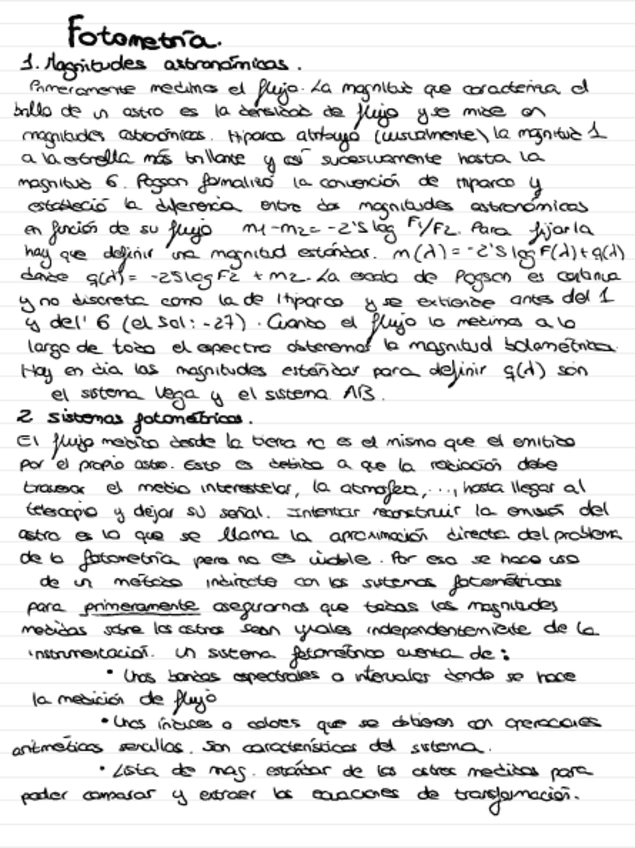 Fotometría.
1. Magnitudes astronómicas.
Primeramente medimos el flujo. La magnitud que caracteriza el
brillo de un astro es la densidad de flujo y se mide en
magnitudes astronómicas. Hiparco atribuyó (visualmente) la magnitud 1
a la estrella más brillante y así sucesivamente hasta la
magnitud 6. Pogson formalizó la convención de Hiparco y
estableció la diferencia entre dos magnitudes astronómicas
en función de su flujo m1-m2= -2'5 log F1/F2. Para fijarla
hay que definir una magnitud estándar. m(λ) = -2'5 log F(λ)+q(λ)
donde q(λ)= -25 log F2 + m2. La escala de Pogson es continua
y no discreta como la de Hiparco y se extiende antes del 1
y del' 6 (el Sol: -27). Cuando el flujo lo medimos a lo
largo de todo el espectro obtenemos la magnitud bolométrica.
Hoy en dia las magnitudes estándar para definir q(λ) son
el sistema Vega y el sistema AB.
2 Sistemas fotométricos.
El flujo medido desde la tierra no es el mismo que el emitido
por el propio astro. Esto es debido a que la radiación debe
travesar el medio interestelar, la atmosfera, ..., hasta llegar al
telescopio y dejar su señal. Intentar reconstruir la emisión del
astro es lo que se llama la aproximación directa del problema
de la fotometría pero no es viable. Por eso se hace uso
de un método indirecto con los sistemas fotométricos
para primeramente asegurarnos que todas las magnitudes
medidas sobre los astros sean iguales independentemente de la
instrumentación. Un sistema fotométrico cuenta de:
• Unas bandas espectrales o intervalos donde se hace
la medición de flujo
• Unos índices o colores que se obtienen con operaciones
aritméticas sencillas. Son características del sistema.
• Lista de mag. estándar de los astros medidos para
poder comparar y extraer las ecuaciones de transformación.